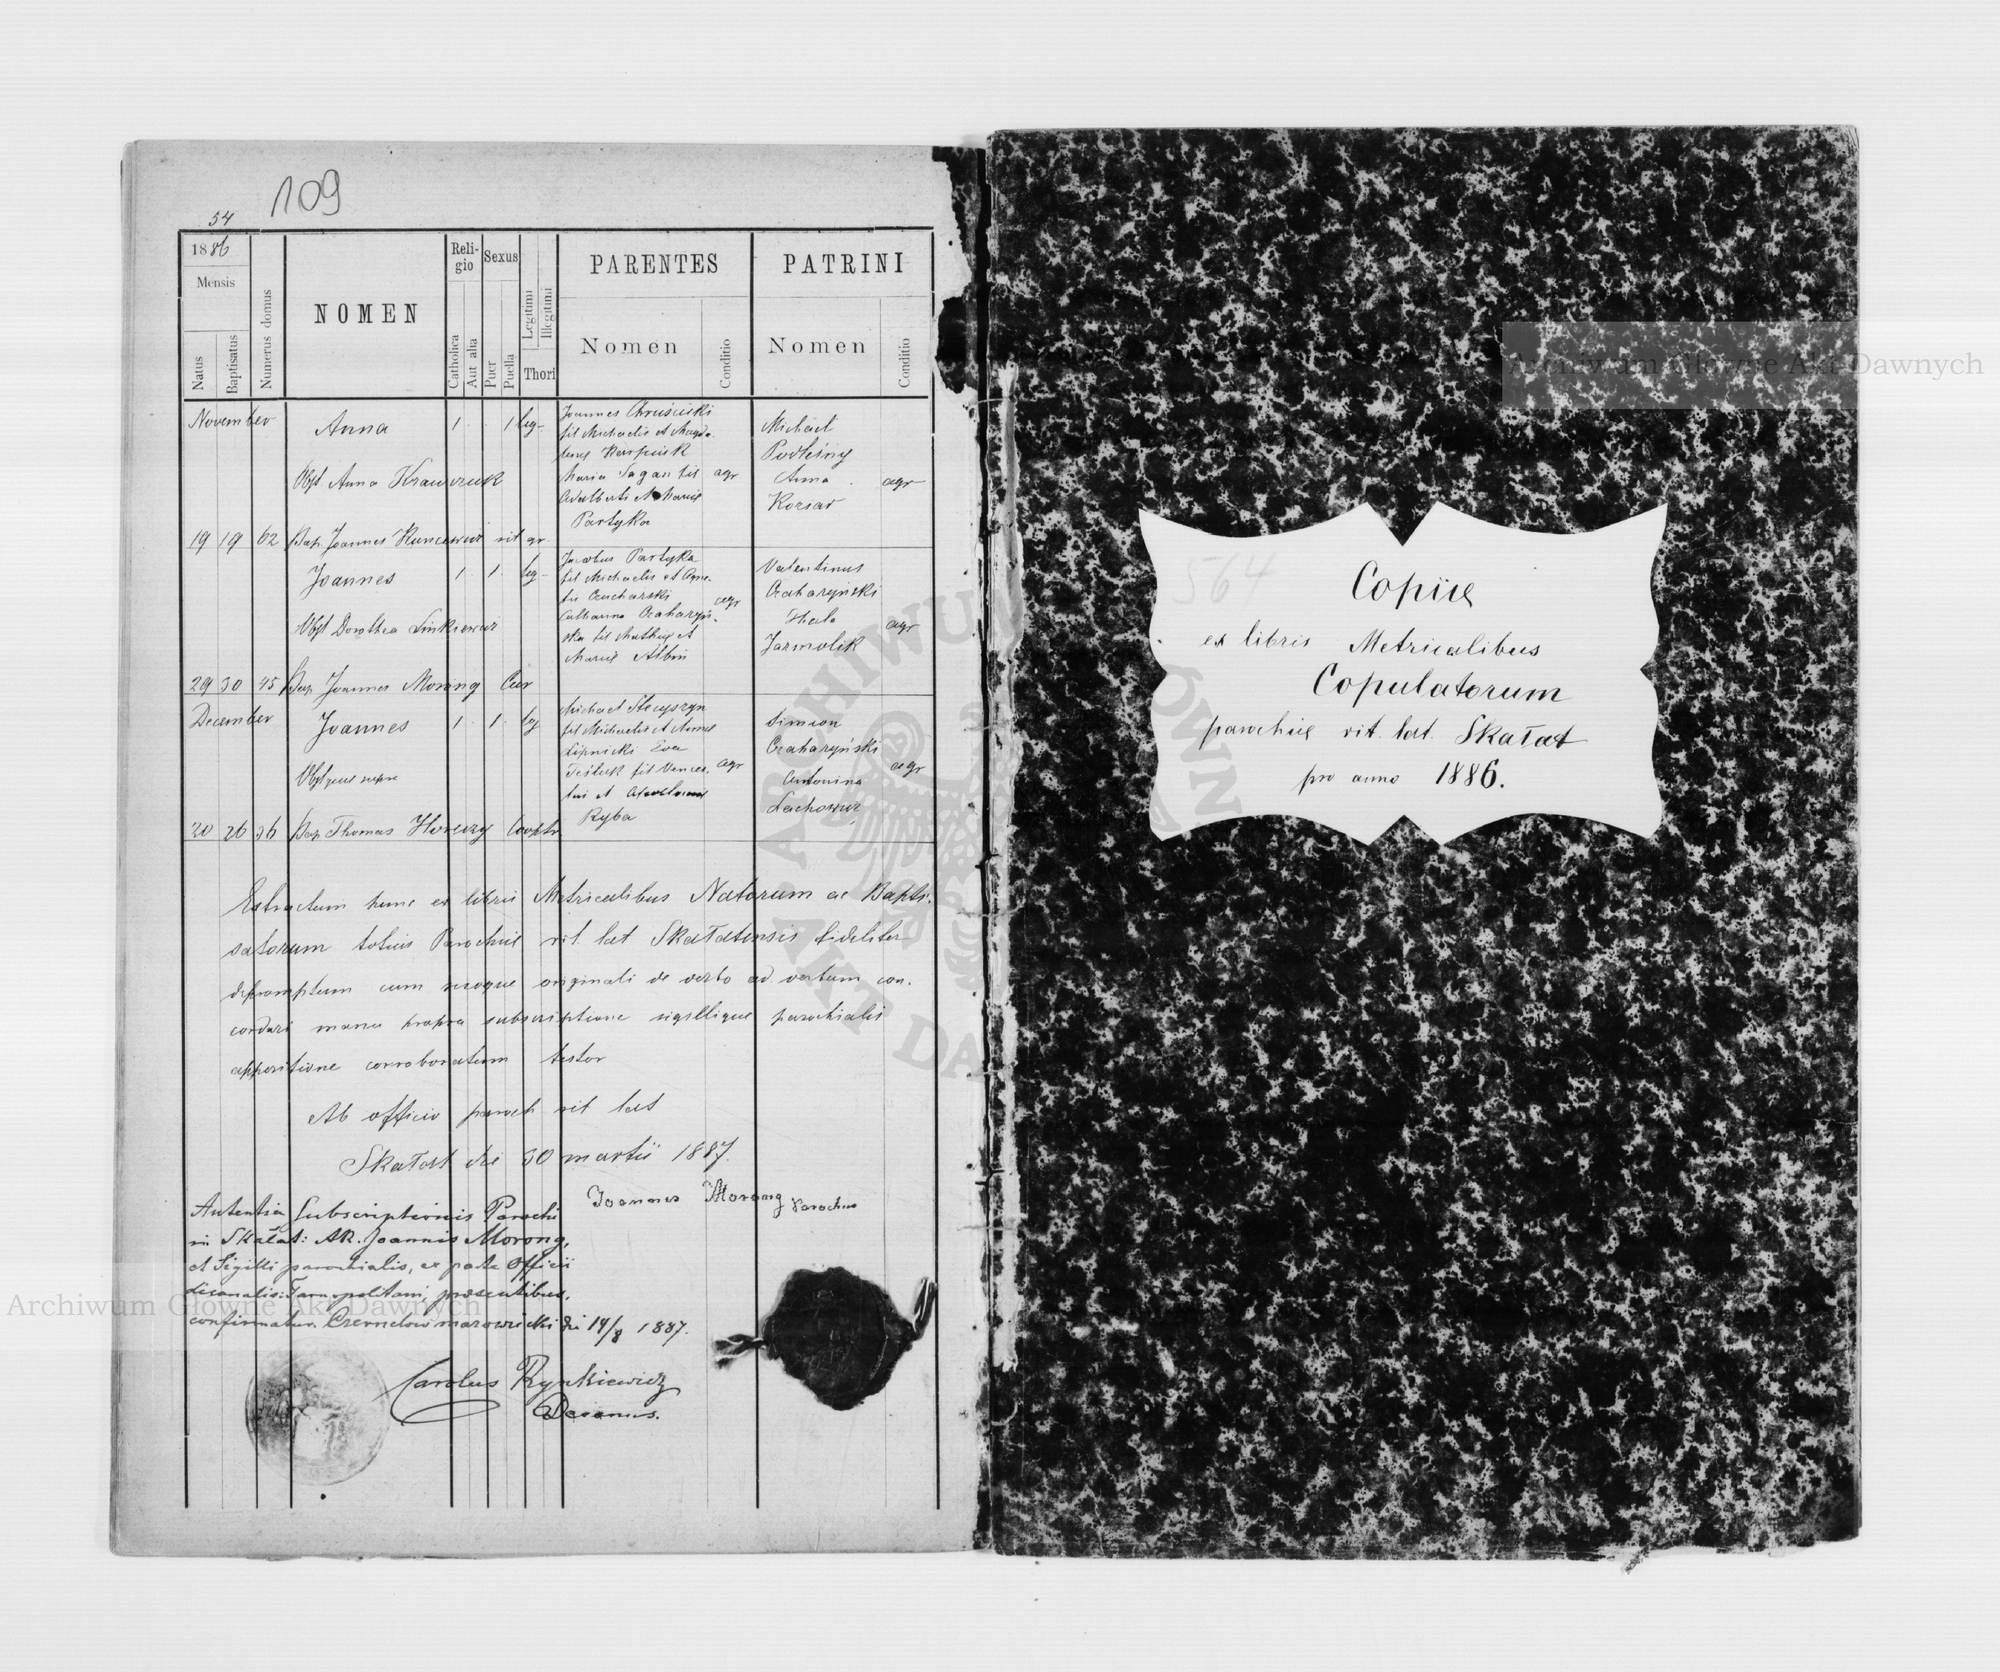 109
54
1886
Mensis
Natus
Baptisatus
Numerus domus
NOMEN
Reli-
gio
Catholica
Aut alia
Sexus
Puer
Puella
Legitimi
Illegitimi
Thori
PARENTES
Nomen
Conditio
PATRINI
Nomen
Conditio
November
Anna
1
1
leg-
Joannes
fil Michaelis et Magda-
Maria Sagan fil
Adalberti et Mariae
Partyka
agr
Michael
Podleśny
Anna
agr
Obst Anna Krawczuk
19 19 62 Bap. Joannes Kuncewicz rit gr.
Joannes
1
1
leg-
Jacobus Partyka
fil Michaelis et Agne-
Catharina Czaharyń-
ska fil Mathaei et
Mariae Albin
agr
Valentinus
Czaharyński
Jarmolik
agr
Obst Dorothea Linkiewicz
29 30 45 Bap. Joannes Morong Cur
December
Joannes
1
1
leg
Michael Stecyszyn
fil Michaelis et Annae
Lipnicki Eva
fil Vences-
lai et
Ryba
agr
Simeon
Czaharyński
Antonina
Lachowicz
agr
Obst quae supra
20 26 36 Bap. Thomas Cooptr
Extractum hunc ex libris Metricalibus Natorum ac Bapti-
satorum totius Parochiae rit. lat Skałatensis fideliter
depromptum cum suoque originali de verbo ad verbum con-
cordari manu propria subscriptione sigillique parochialis
appositione corroboratum testor
Ab officio paroch rit lat
Skałat die 30 martii 1887.
Joannes Morong Parochus
Autentia Subscriptionis Parochi
in Skałat: AR. Joannis Morong,
et Sigilli parochialis, ex parte Officii
decanalis: Tarnopoltani, praesentibus,
confirmatur. Czernelow mazowiecki die 14/8 1887.
Carolus Rynkiewicz
Decanus.
564
Copiae
ex libris Metricalibus
Copulatorum
parochiae rit. lat. Skałat
pro anno 1886.
Archiwum Główne Akt Dawnych
Archiwum Główne Akt Dawnych